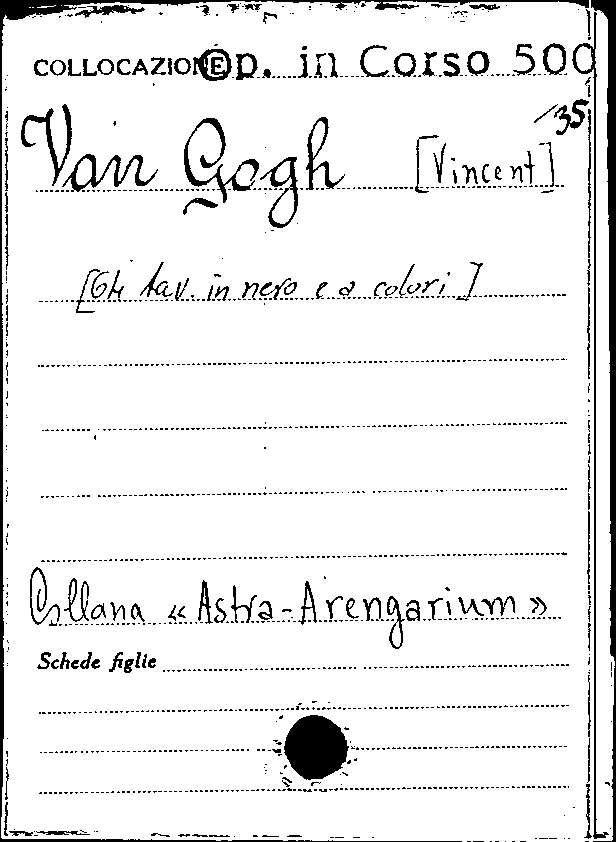 COLLOCAZIONE Op. in Corso 500
/35
Van Gogh [Vincent]
[64 tav. in nero e a colori]
Collana « Astra-Arengarium »
Schede figlie